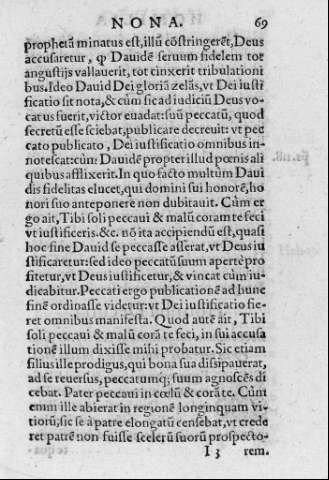 NONA. 69
prophetã minatus est, illũ cõstringerẽt, Deus
accusaretur, ꝙ Dauidẽ seruum fidelem tot
angustijs vallauerit, tot cinxerit tribulationi
bus. Ideo Dauid Dei gloriã zelãs, vt Dei iusti
ficatio sit nota, & cũm sic ad iudiciũ Deus vo-
catus fuerit, victor euadat: suũ peccatũ, quod
secretũ esse sciebat, publicare decreuit: vt pec
cato publicato, Dei iustificatio omnibus in-
notescat: cùm Dauidẽ propter illud pœnis ali
quibus afflixerit. In quo facto multùm Daui
dis fidelitas elucet, qui domini sui honorẽ, ho
nori suo anteponere non dubitauit. Cùm er
go ait, Tibi soli peccaui & malũ coram te feci
vt iustificeris. &c. nõ ita accipiendũ est, quasi
hoc fine Dauid se peccasse asserat, vt Deus iu
stificaretur: sed ideo peccatũ suum apertè pro
fitetur, vt Deus iustificetur, & vincat cùm iu-
dicabitur. Peccati ergo publicationẽ ad hunc
finẽ ordinasse videtur: vt Dei iustificatio fie-
ret omnibus manifesta. Quod autẽ ait, Tibi
soli peccaui & malũ corã te feci, in sui accusa
tionẽ illum dixisse mihi probatur. Sic etiam
filius ille prodigus, qui bona sua dissipauerat,
ad se reuersus, peccatumq; suum agnoscẽs di
cebat. Pater peccaui in cœlũ & corã te. Cùm
enim ille abierat in regionẽ longinquam vi-
tiorũ, sic se à patre elongatũ censebat, vt crede
ret patrẽ non fuisse scelerũ suorũ prospecto-
I 3 rem.